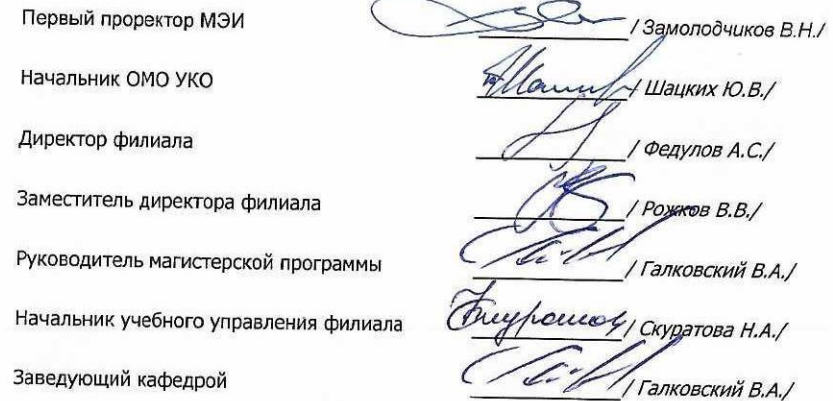 Первый проректор МЭИ / Замолодчиков В.Н./
Начальник ОМО УКО / Шацких Ю.В./
Директор филиала / Федулов А.С./
Заместитель директора филиала / Рожков В.В./
Руководитель магистерской программы / Галковский В.А./
Начальник учебного управления филиала / Скуратова Н.А./
Заведующий кафедрой / Галковский В.А./